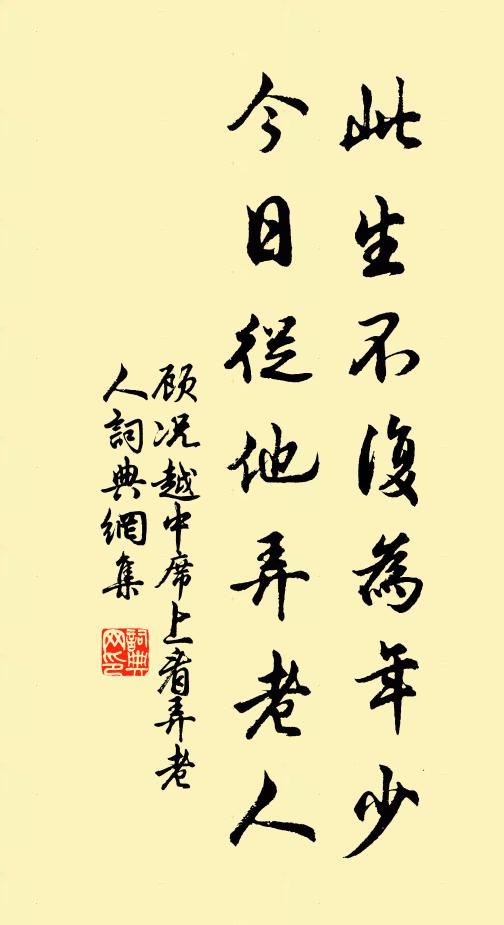 此生不復為年少
今日從他弄老人
顾况越中席上看弄老
人詞典網集
詞典网印